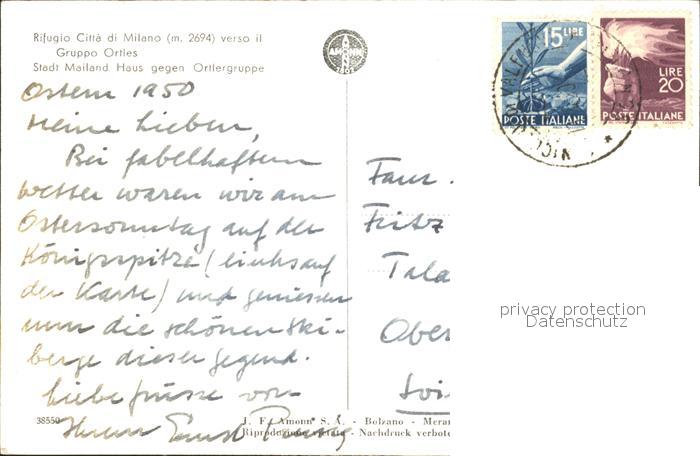 Rifugio Città di Milano (m. 2694) verso il
Gruppo Ortles
Stadt Mailand Haus gegen Ortlergruppe
AMONN
15 LIRE
POSTE ITALIANE
LIRE
20
POSTE ITALIANE
Ostern 1950
Meine Lieben,
Bei fabelhaftem
Wetter waren wir am
Ostersonntag auf der
Königsspitze (links auf
der Karte) und geniessen
nun die schönen Ski-
berge dieser Gegend.
Liebe Grüsse von
Ernst
Fam.
Fritz
Tala
Ober
privacy protection
Datenschutz
38550
J. F. Amonn S. A. - Bolzano - Meran
Riproduzione vietata - Nachdruck verbote